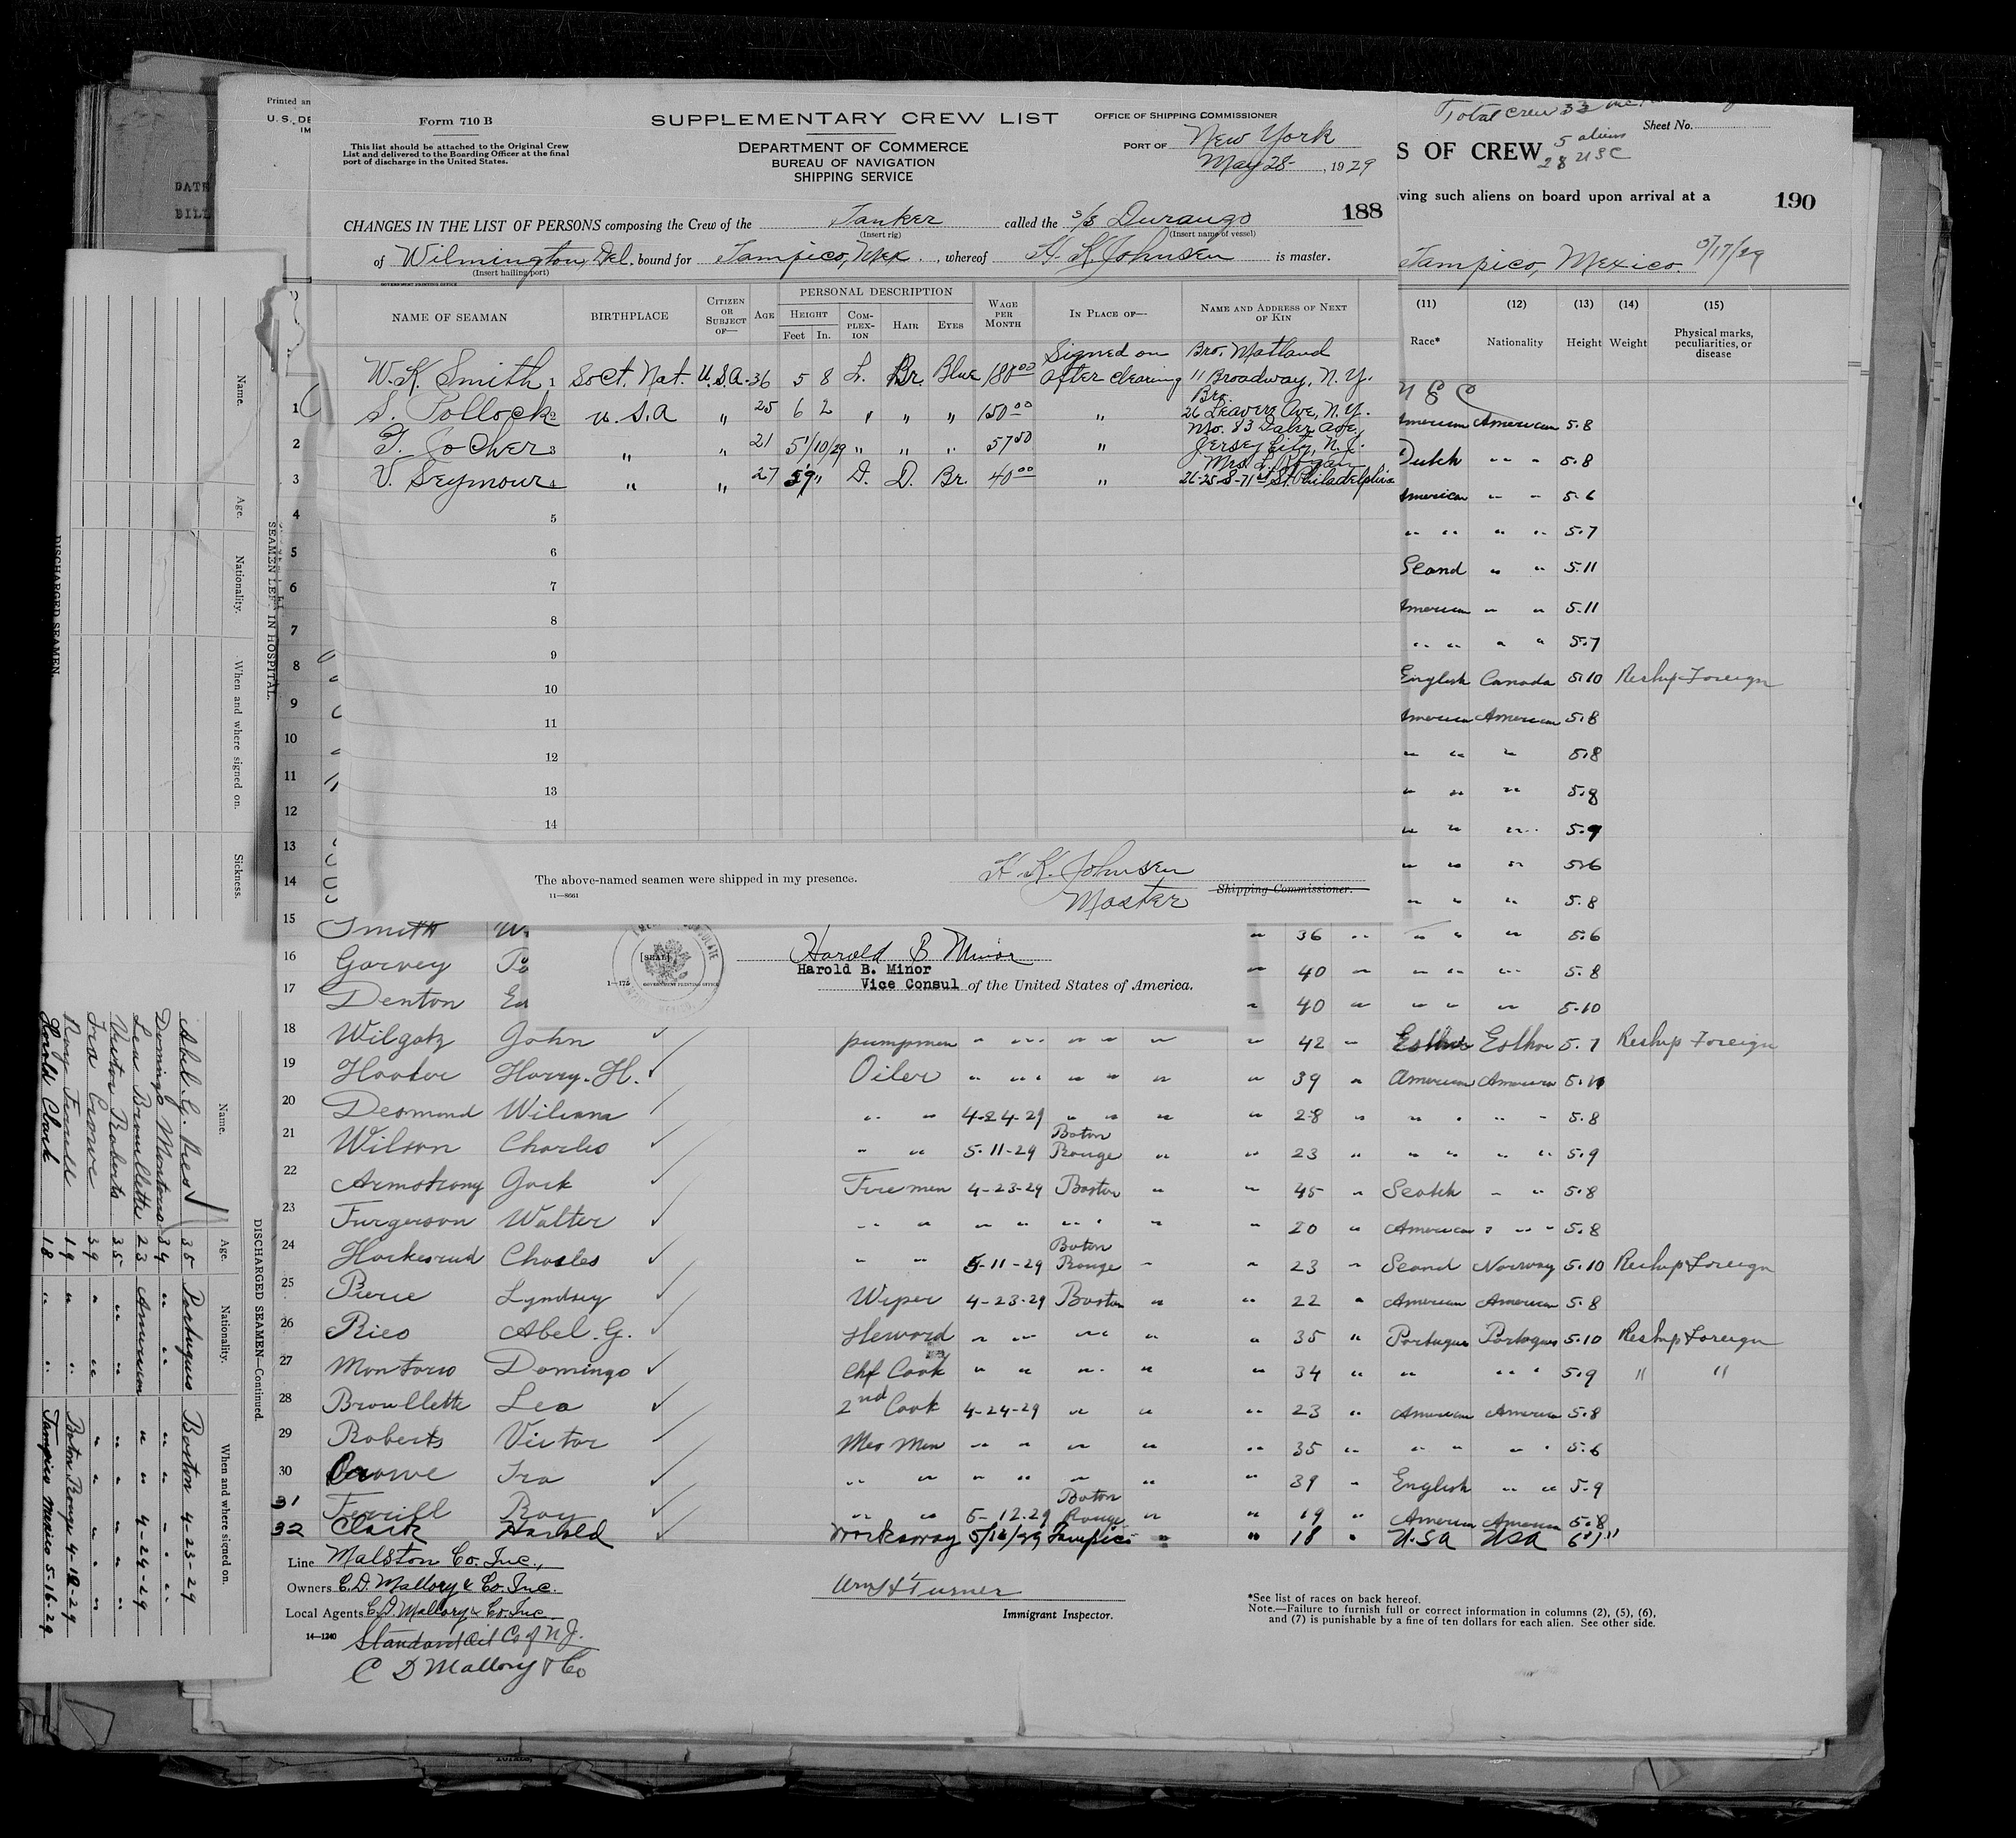 Form 710 B
This list should be attached to the Original Crew
List and delivered to the Boarding Officer at the final
port of discharge in the United States.
SUPPLEMENTARY CREW LIST
DEPARTMENT OF COMMERCE
BUREAU OF NAVIGATION
SHIPPING SERVICE
OFFICE OF SHIPPING COMMISSIONER
PORT OF New York
May 28- , 1929
188
CHANGES IN THE LIST OF PERSONS composing the Crew of the Tanker called the S/S Durango
(Insert rig) (Insert name of vessel)
of Wilmington, Del. bound for Tampico, Mex. , whereof H. K. Johnsen is master.
(Insert hailing port)
GOVERNMENT PRINTING OFFICE
NAME OF SEAMAN BIRTHPLACE CITIZEN OR SUBJECT OF— AGE PERSONAL DESCRIPTION HEIGHT Feet In. COM-PLEX-ION HAIR EYES WAGE PER MONTH IN PLACE OF— NAME AND ADDRESS OF NEXT OF KIN
W. K. Smith 1 Scct. Nat. U.S.A. 36 5 8 L. Br. Blue 180 00 Signed on after clearing Bro. Matland 11 Broadway, N.Y.
S. Pollock 2 U.S.A " 25 6 2 " " " 150 00 " Bro. 26 Ave, N.Y.
3 " " 21 5'/10/29 " " " 57 50 " 83 Jersey City, N.J.
V. Seymour 4 " " 27 5 9" D. D. Br. 40 00 " Mrs. L. 26-25 S-71st St. Philadelphia
5
6
7
8
9
10
11
12
13
14
The above-named seamen were shipped in my presence.
11—8661
H. K. Johnsen
Master
Shipping Commissioner.
Printed an
U. S. DE
IM
Total crew 33
5 aliens
28 USC
Sheet No.
S OF CREW
ving such aliens on board upon arrival at a
190
Tampico, Mexico. 5/17/29
(11) (12) (13) (14) (15)
Race* Nationality Height Weight Physical marks, peculiarities, or disease
USC
American American 5.8
Dutch " " 5.8
American " " 5.6
" " " " 5.7
Scand " " 5.11
American " " 5.11
" " " " 5.7
English Canada 5.10 Reship Foreign
American American 5.8
" " " 5.8
" " " 5.8
" " " 5.9
" " " 5.6
" " " 5.8
[SEAL]
1—175 GOVERNMENT PRINTING OFFICE
Harold B Minor
Harold B. Minor
Vice Consul of the United States of America.
15 Smith W. " 36 " " " " 5.6
16 Garvey " 40 " " " " 5.8
17 Denton " 40 " " " " 5.10
18 Wilgatz John pumpman " " " " " " 42 " Esthor 5.7 Reship Foreign
19 Hooker Harry. H. Oiler " " " " " " 39 " American American
20 Desmond " " 4-24-29 " " " " 28 " " " " " 5.8
21 Wilson Charles " " 5-11-29 Baton Rouge " " 23 " " " " " 5.9
22 Armstrong Jack Firemen 4-23-29 Boston " " 45 " Scotch " " 5.8
23 Furgerson Walter " " " " " " " " 20 " American " " 5.8
24 Charles " " 5-11-29 Baton Rouge " " 23 " Scand Norway 5.10 Reship Foreign
25 Pierce Lyndsey Wiper 4-23-29 Boston " " 22 " American American 5.8
26 Ries Abel. G. Steward " " " " " 35 " Portugues Portugues 5.10 Reship Foreign
27 Montorio Domingo Chf Cook " " " " " 34 " " " " 5.9 " "
28 Broullette Leo 2nd Cook 4-24-29 " " " 23 " American America 5.8
29 Roberts Victor Mes Men " " " " " 35 " " " " " 5.6
30 Crowe Ira " " " " " " " 39 " English " " 5.9
31 Ferrill Roy " " 5-12-29 Baton Rouge " " 19 " American American 5.8
32 Clark Harold Workaway 5/16/29 Tampico " " 18 " USA USA 6'1"
Line Malston Co. Inc.,
Owners C.D. Mallory & Co. Inc.
Local Agents C.D. Mallory & Co. Inc
14—1240
Standard Oil Co of N.J.
C D Mallory & Co
Wm H Turner
Immigrant Inspector.
*See list of races on back hereof.
Note.—Failure to furnish full or correct information in columns (2), (5), (6),
and (7) is punishable by a fine of ten dollars for each alien. See other side.
DATE
BILL
SEAMEN LEFT IN HOSPITAL.
Name. Age. Nationality. When and where signed on. Sickness.
DISCHARGED SEAMEN.
DISCHARGED SEAMEN—Continued.
Name. Age. Nationality. When and where signed on.
Abel. G. Ries 35 Portugues Boston 4-23-29
Domingo Montorio 34 " " " " "
Leo Broullette 23 American " " 4-24-29
Victor Roberts 35 " " " " "
Ira Crowe 39 " " " " "
Roy Ferrill 19 " " Baton Rouge 4-12-29
Harold Clark 18 " " Tampico Mexico 5-16-29